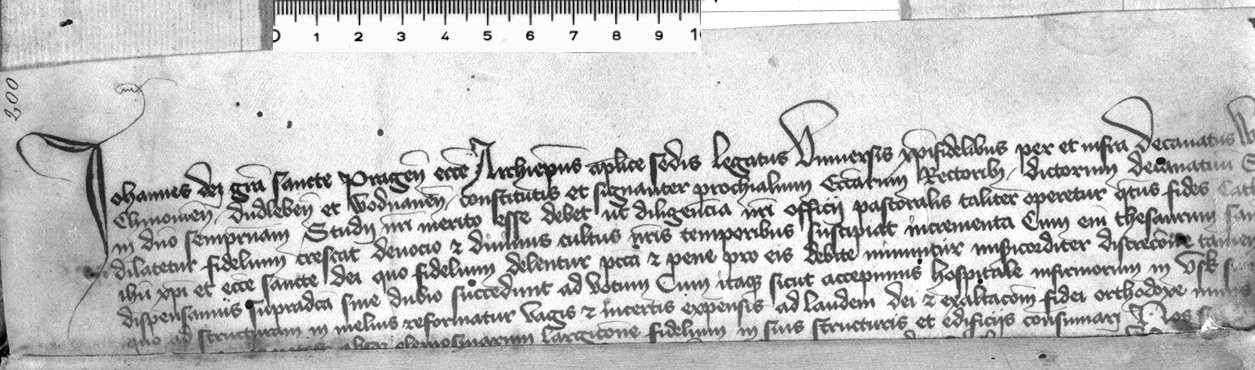 200
0 1 2 3 4 5 6 7 8 9 1
Johannes dei gra sancte Pragen eccē Archiepus aplice sedis legatus Vniuersis xpifidelibus per et infra Decanatus
Chinowen Dudleben et Wodnanen constitutis et signanter prochialium Eccarum Rectoribus dictorum decanatuum
in dno sempiternam Studii nri merito esse debet ut diligencia nri officij pastoralis taliter operetur qtus fides
dilatetur fidelium crescat deuocio et diuinus cultus nris temporibus suscipiat incrementa Cum eni thesaurum
ihu xpi et eccē sancte dei quo fidelium delentur pcca et pene pro eis debite minuuntur misicorditer discrecione tamen
dispensamus supradca sine dubio succedunt ad votum Cum itaque sicut accepimus hospitale infirmorum in Vsk
quo ad structuram in melius reformatur vagis et incertis expensis ad laudem dei et exaltacom fidei orthodoxe
elemosinarum largicone fidelium in suis structuris et edificijs consumari Nos